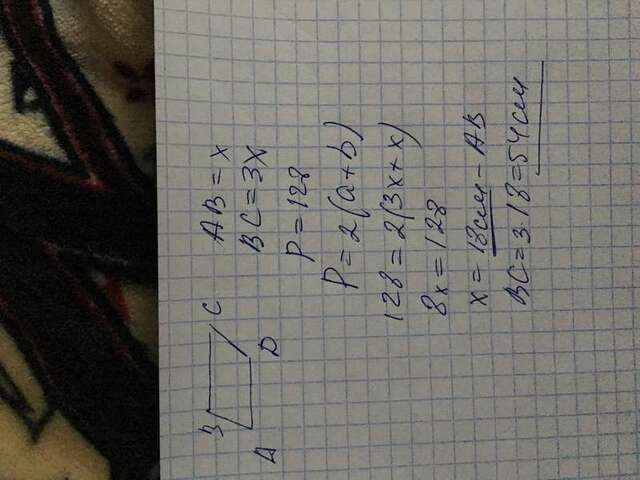 B C
A D
AB = x
BC = 3x
P = 128
P = 2(a+b)
128 = 2(3x+x)
8x = 128
x = 18см - AB
BC = 3.18 = 54см